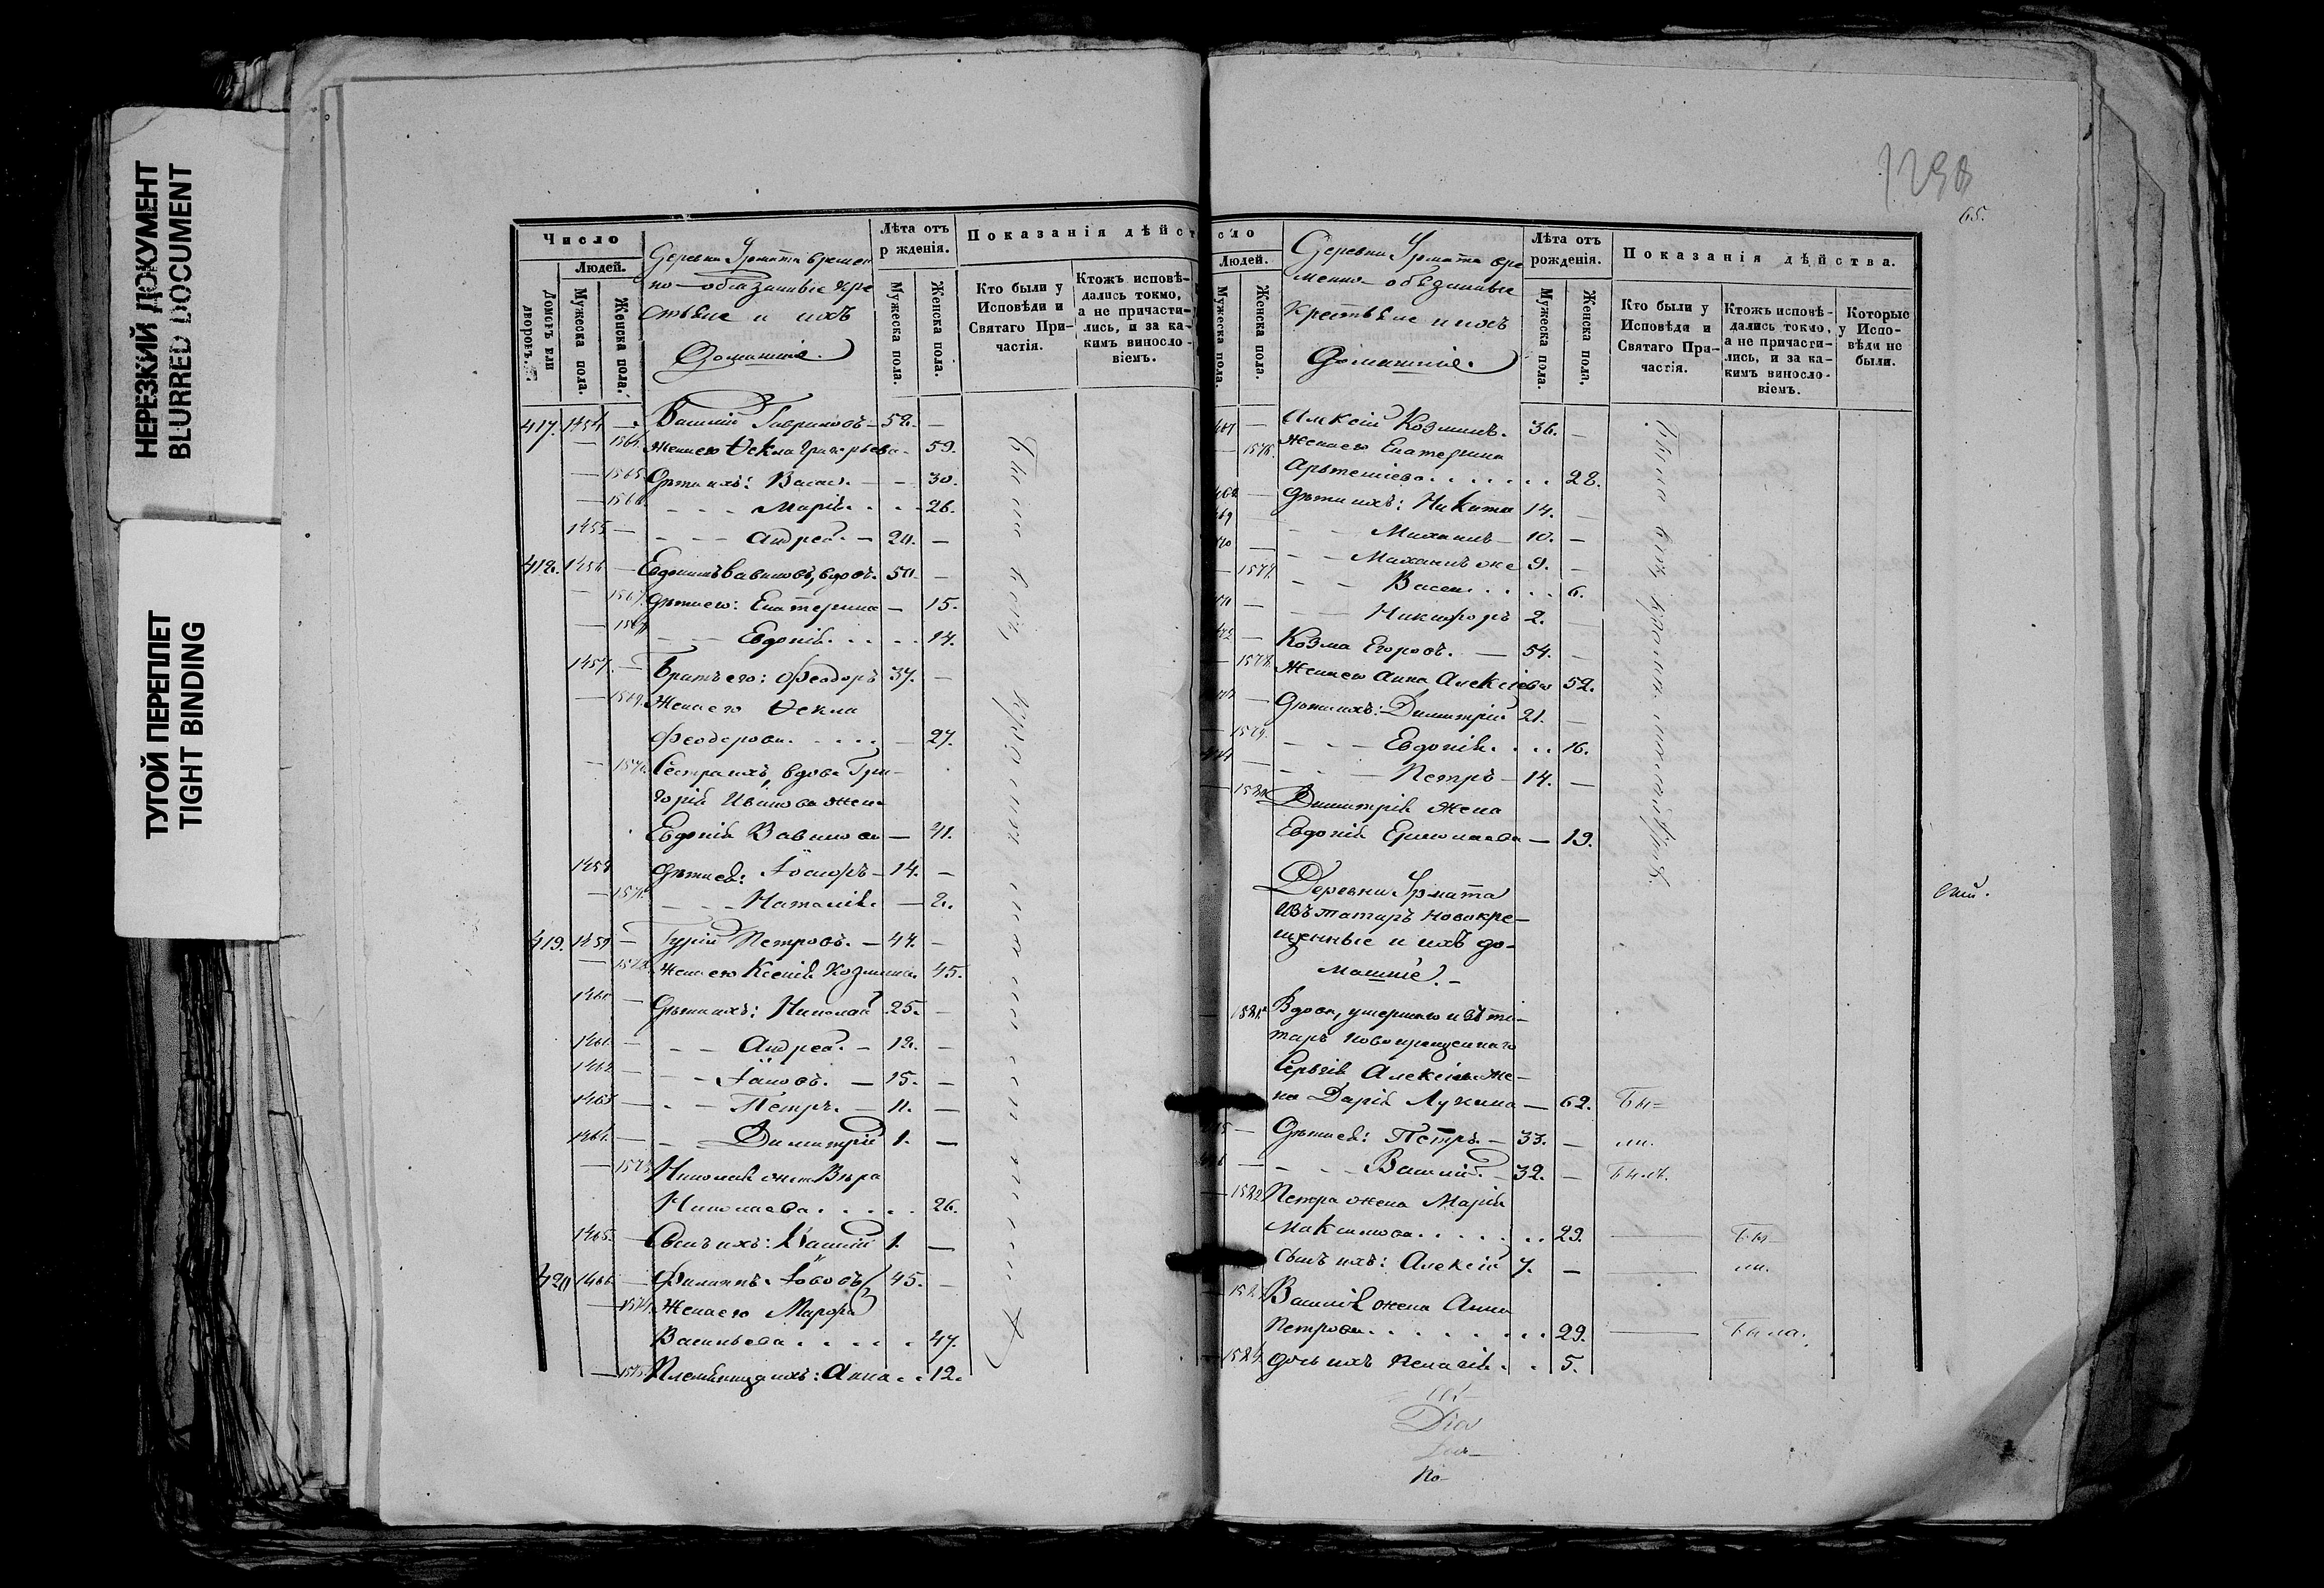 НЕРЕЗКИЙ ДОКУМЕНТ
BLURRED DOCUMENT
ТУГОЙ ПЕРЕПЛЕТ
TIGHT BINDING
Число
Людей.
Домовъ или дворовъ.
Мужеска пола.
Женска пола.
Деревни Урмата времен
но-обязанные кре
стьяне и ихъ
Домашніе.
Лѣта отъ
р жденія.
Мужеска пола.
Женска пола.
Показанія дѣйст
Кто были у
Исповѣди и
Святаго При-
частія.
Ктожъ исповѣ-
дались токмо,
а не причасти-
лись, и за ка-
кимъ винословіемъ.
417. 1454 — Василій Гавриловъ — 58. —
— 1564. Жена его Ѳекла Григорьева — 59.
— 1565. Дѣти ихъ: Васса — — 30.
— 1566. — — — Марія. . . 26.
1455 — — — — Андрей. — 24. —
418. 1456 — Евдокимъ Вавиловъ, вдовъ. 50. —
— 1567. Дѣти его: Екатерина — 15.
— — — Евдокія. . . . . 14.
1457. — Братъ его: Феодоръ 37. —
— 1569. Жена его Ѳекла
Феодорова. . . . . — 27.
— 1570. Сестра ихъ, вдова Гри-
горія Иванова жена
Евдокія Вавилова — 41.
1458 Дѣти ея: — 14. —
— 1571. — — — Наталія. — 2.
419. 1459 — Гурій Петровъ. — 47. —
— 1572. Жена его Ксенія Козмина 45.
1460 — Дѣти ихъ: Николай 25. —
1461. — — — Андрей. — 18. —
1462 — — — Іаковъ. — 15. —
1463 — — — Петръ. — 11. —
1464. — — Димитрій 1. —
— 1573. Николая жена Вѣра
Николаева. . . . . 26.
1465. — Сынъ ихъ: Василій 1. —
420. 1466. — Филиппъ Іововъ 45. —
— 1574. Жена его Марфа
Васильева. . . . . 47.
— 1575. Племянница ихъ: Анна. . 12.
1298
65.
сло
Людей.
Мужеска пола.
Женска пола.
Деревни Урмата вре
менно-обязанные
Крестьяне и ихъ
Домашніе.
Лѣта отъ
рожденія.
Мужеска пола.
Женска пола.
Показанія дѣйства.
Кто были у
Исповѣди и
Святаго При-
частія.
Ктожъ исповѣ-
дались токмо,
а не причасти-
лись, и за ка-
кимъ винословіемъ.
Которые
у Испо-
вѣди не
были.
— Алексій Козминъ. 36. —
— 1576. Жена его Екатерина
Артемьева. . . . . . . 28.
— Дѣти ихъ: Никита 14. —
— — Михаилъ — 10. —
— — Михаилъ же 9. —
— 1577. — — Васса. . . . . 6.
— — — Никифоръ 2. —
— Козма Егоровъ. — 54. —
— 1578. Жена его Анна Алексіева 52.
— Дѣти ихъ: Димитрій 21. —
— 1579. — — — Евдокія. . . . 16.
— — — Петръ — 14. —
— 1580. Димитрія жена
Евдокія Ермолаева — 19.
Деревни Урмата
Изъ татаръ новокре-
щенные и ихъ до-
машніе. —
— 1581. Вдова, умершаго изъ та-
таръ новокрещеннаго
Сергія Алексіева же-
на Дарія Лукина — 62. Бы-
— Дѣти ея: Петръ. — 33. — ли.
— — — Василій. — 32. — Былъ.
— 1582. Петра жена Марія
Максимова. . . . . . . 29. — Бы
Сынъ ихъ: Алексій 7. — — ли.
— 1583. Василія жена Анна
Петрова. . . . . . . . 29. — Была.
— 1584. Дочь ихъ Пелагія. . 5.
По-